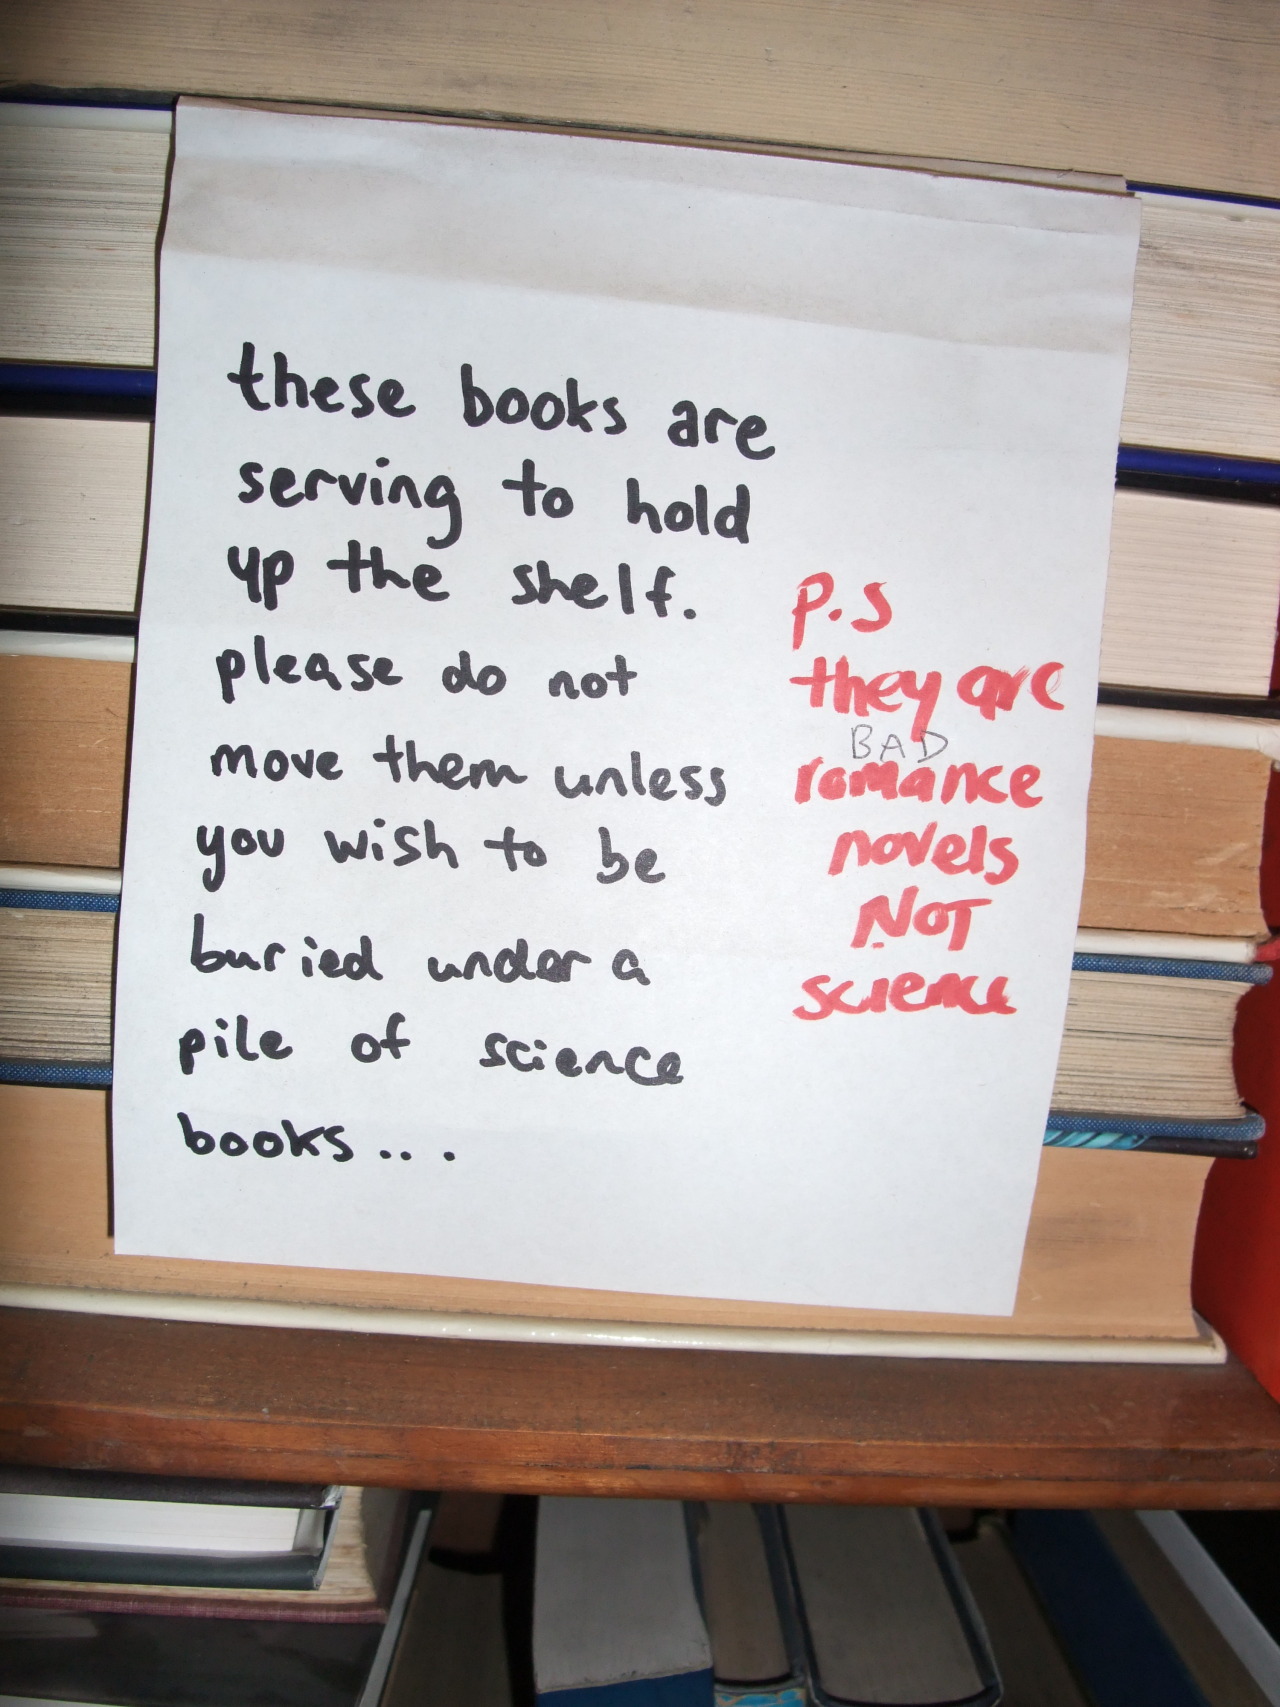 these books are
serving to hold
up the shelf.
please do not
move them unless
you wish to be
buried under a
pile of science
books...
p.s
they are
BAD
romance
novels
NOT
science